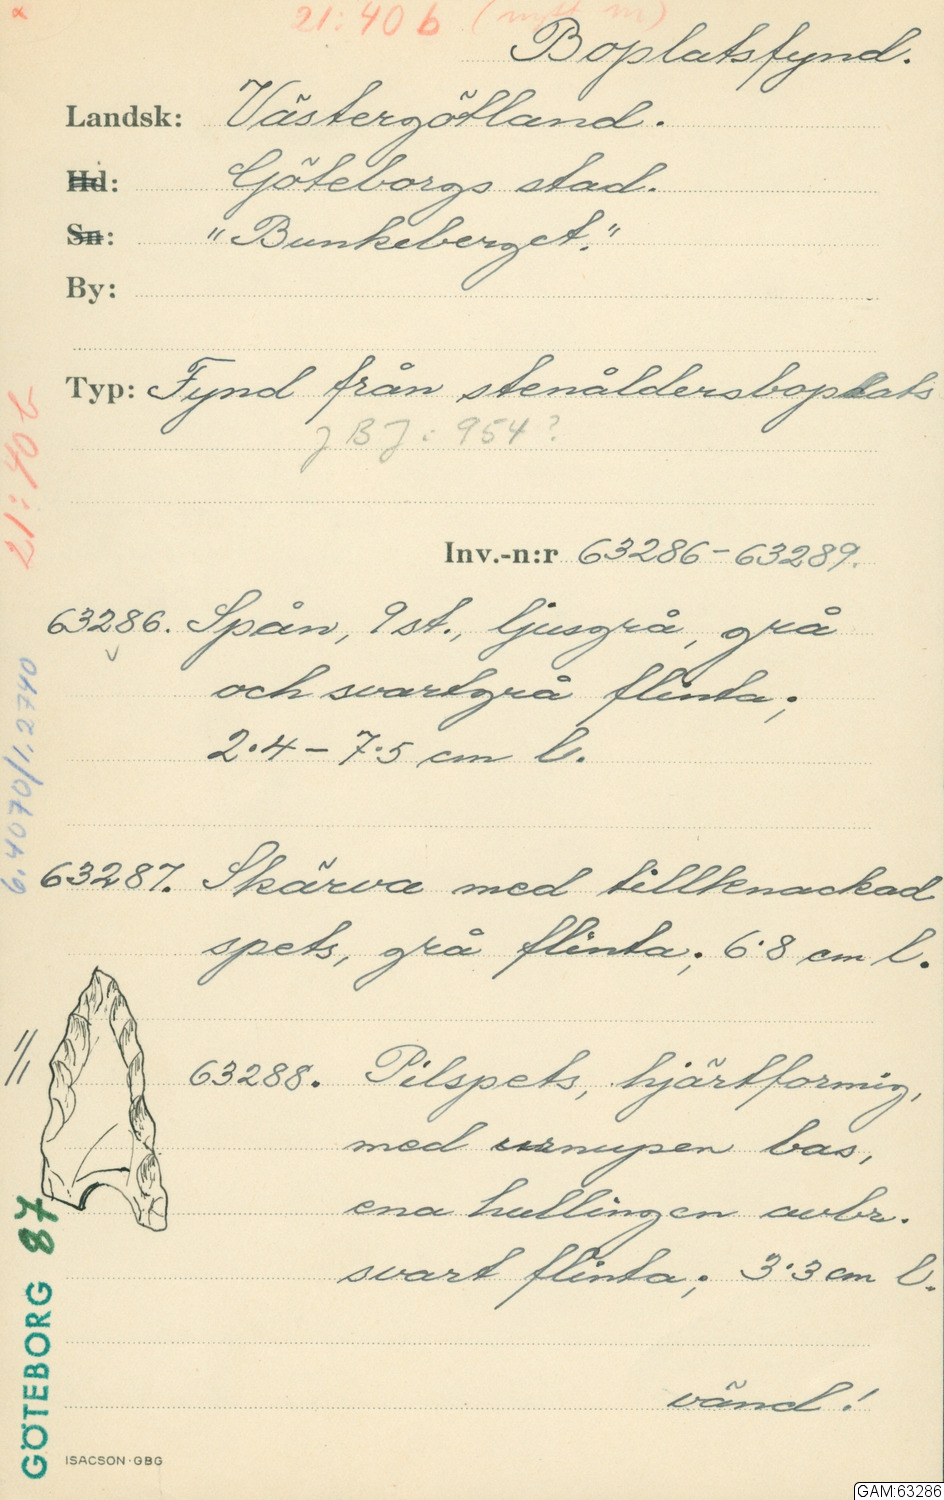 21:40 b
Boplatsfynd.
Landsk: Västergötland.
Hd: Göteborgs stad.
Sn: "Bunkeberget."
By:
Typ: Fynd från stenåldersboplats
JBJ: 954?
21:40 b
Inv.-n:r 63286-63289.
63286. Spån, 9 st., ljusgrå, grå
och svartgrå flinta;
2.4 - 7.5 cm l.
6.4070/1.2740
63287. Skärva med tillknackad
spets, grå flinta; 6.8 cm l.
1/1
63288. Pilspets, hjärtformig,
med urnupen bas,
ena hullingen avbr.
svart flinta; 3.3 cm l.
vänd!
GÖTEBORG 87
ISACSON·GBG
GAM:63286